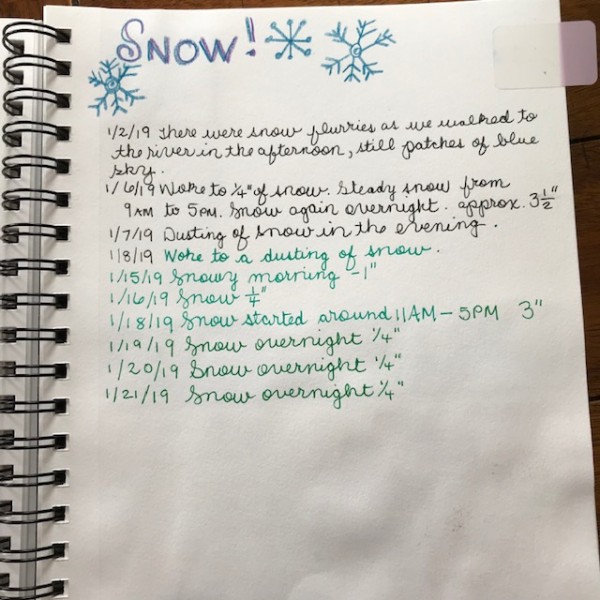 SNOW!
1/2/19 There were snow flurries as we walked to
the river in the afternoon, still patches of blue
sky.
1/6/19 Woke to 1/4" of snow. Steady snow from
9AM to 5PM. Snow again overnight. approx. 3 1/2"
1/7/19 Dusting of snow in the evening.
1/8/19 Woke to a dusting of snow.
1/15/19 Snowy morning - 1"
1/16/19 Snow 1/4"
1/18/19 Snow started around 11AM - 5PM 3"
1/19/19 Snow overnight 1/4"
1/20/19 Snow overnight 1/4"
1/21/19 Snow overnight 1/4"